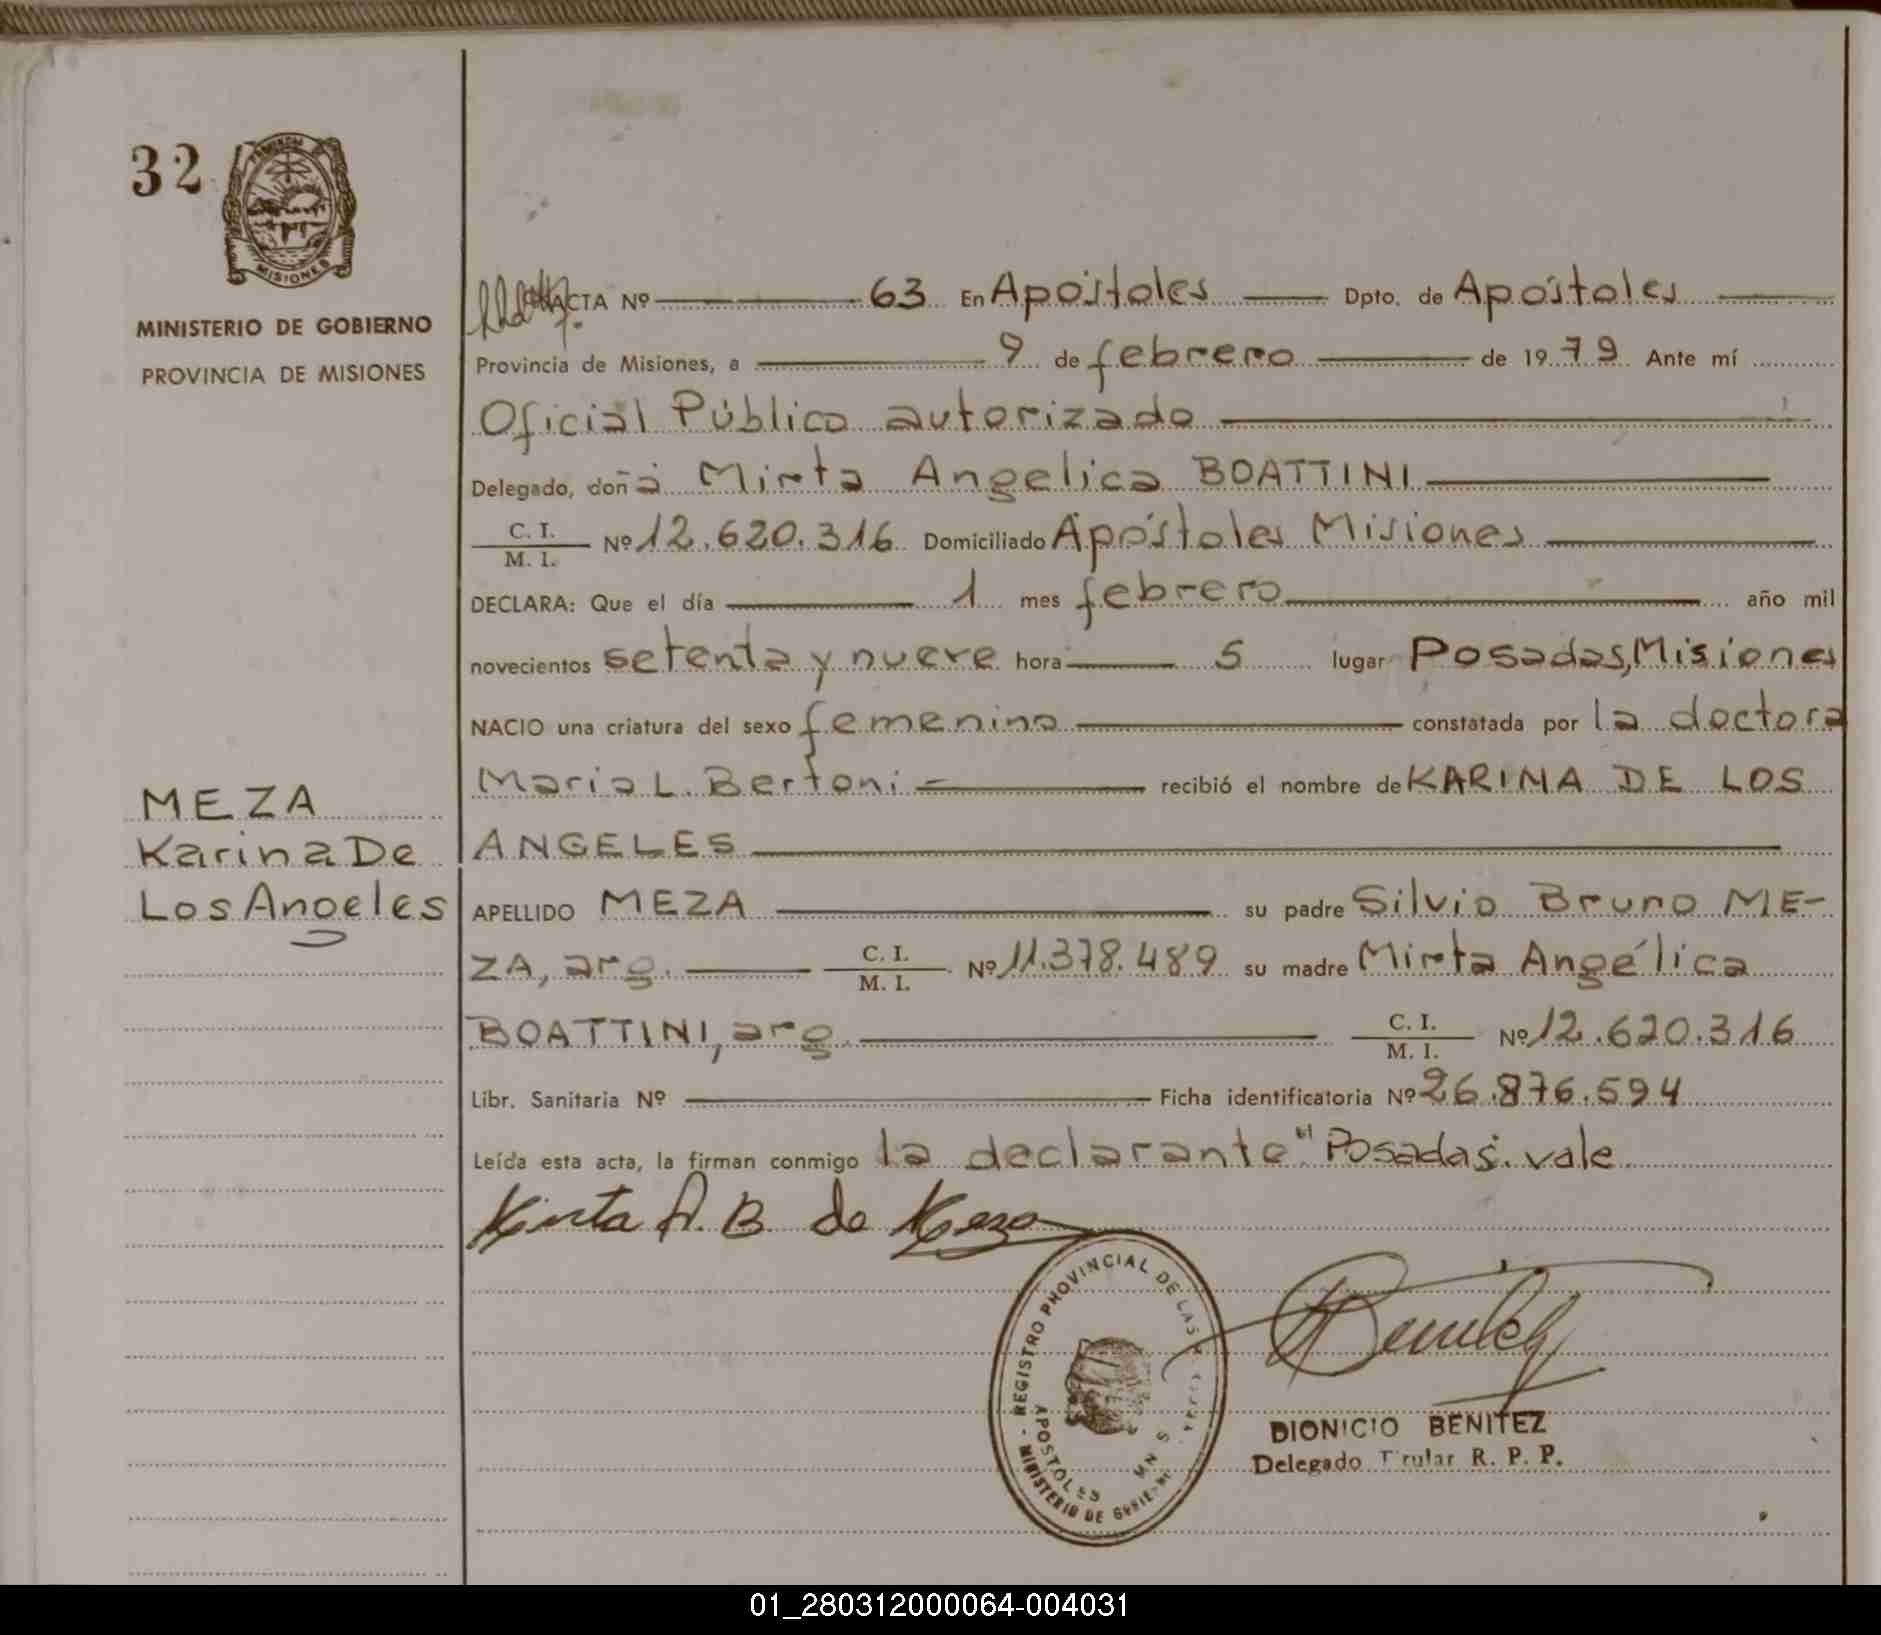 32
PROVINCIA
MISIONES
MINISTERIO DE GOBIERNO
PROVINCIA DE MISIONES
MEZA
Karina De
Los Angeles
ACTA Nº 63 En Apóstoles Dpto. de Apóstoles
Provincia de Misiones, a 9 de febrero de 1979 Ante mí
Oficial Público autorizado
Delegado, doña Mirta Angelica BOATTINI
C. I.
M. I. Nº 12.620.316 Domiciliado Apóstoles Misiones
DECLARA: Que el día 1 mes febrero año mil
novecientos setenta y nueve hora 5 lugar Posadas, Misiones
NACIO una criatura del sexo femenino constatada por la doctora
Maria L. Bertoni - recibió el nombre de KARINA DE LOS
ANGELES
APELLIDO MEZA su padre Silvio Bruno ME-
ZA, arg. C. I. M. I. Nº 11.378.489 su madre Mirta Angélica
BOATTINI, arg. C. I. M. I. Nº 12.620.316
Libr. Sanitaria Nº Ficha identificatoria Nº 26.876.594
Leída esta acta, la firman conmigo la declarante "Posadas". vale
Mirta A. B. de Meza
REGISTRO PROVINCIAL DE LAS
APOSTOLES
MNS
MINISTERIO DE GOBIERNO
DIONICIO BENITEZ
Delegado Titular R. P. P.
01_280312000064-004031